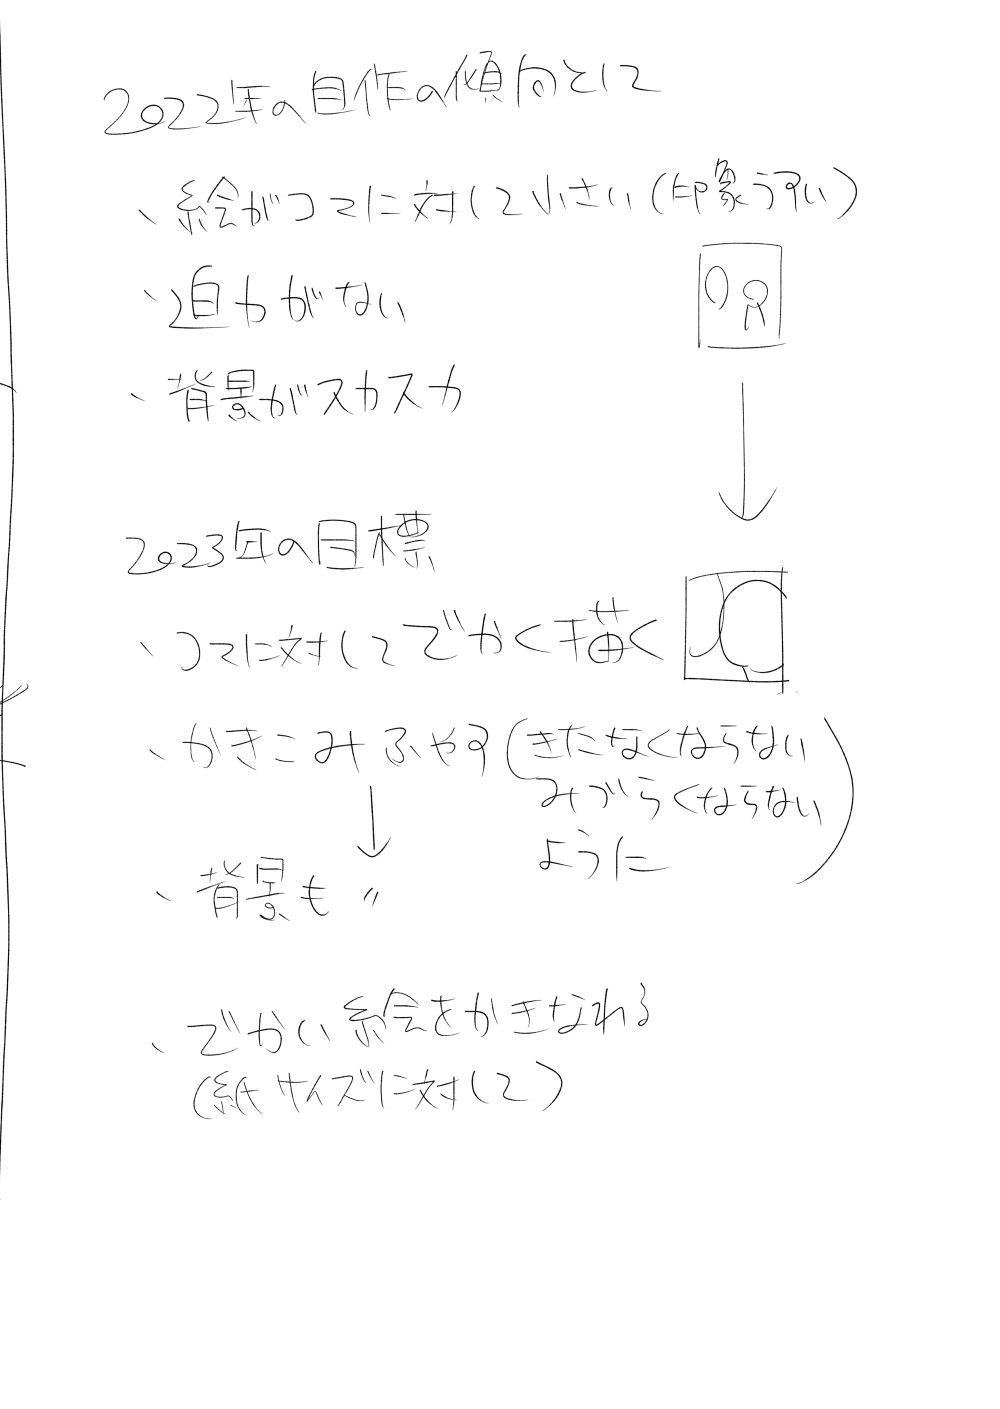 2022年の自作の傾向として
、絵がコマに対して小さい(印象うすい)
、迫力がない
、背景がスカスカ
2023年の目標
、コマに対してでかく描く
、かきこみふやす(きたなくならない
みづらくならない
ように)
、背景も〃
、でかい絵をかきなれる
(紙サイズに対して)